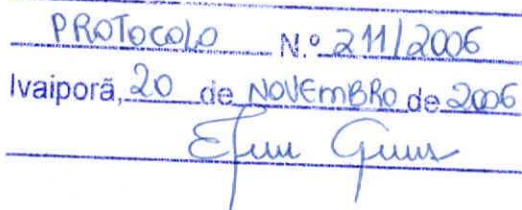 PROTOCOLO N.º 211/2006
Ivaiporã, 20 de NOVEMBRO de 2006